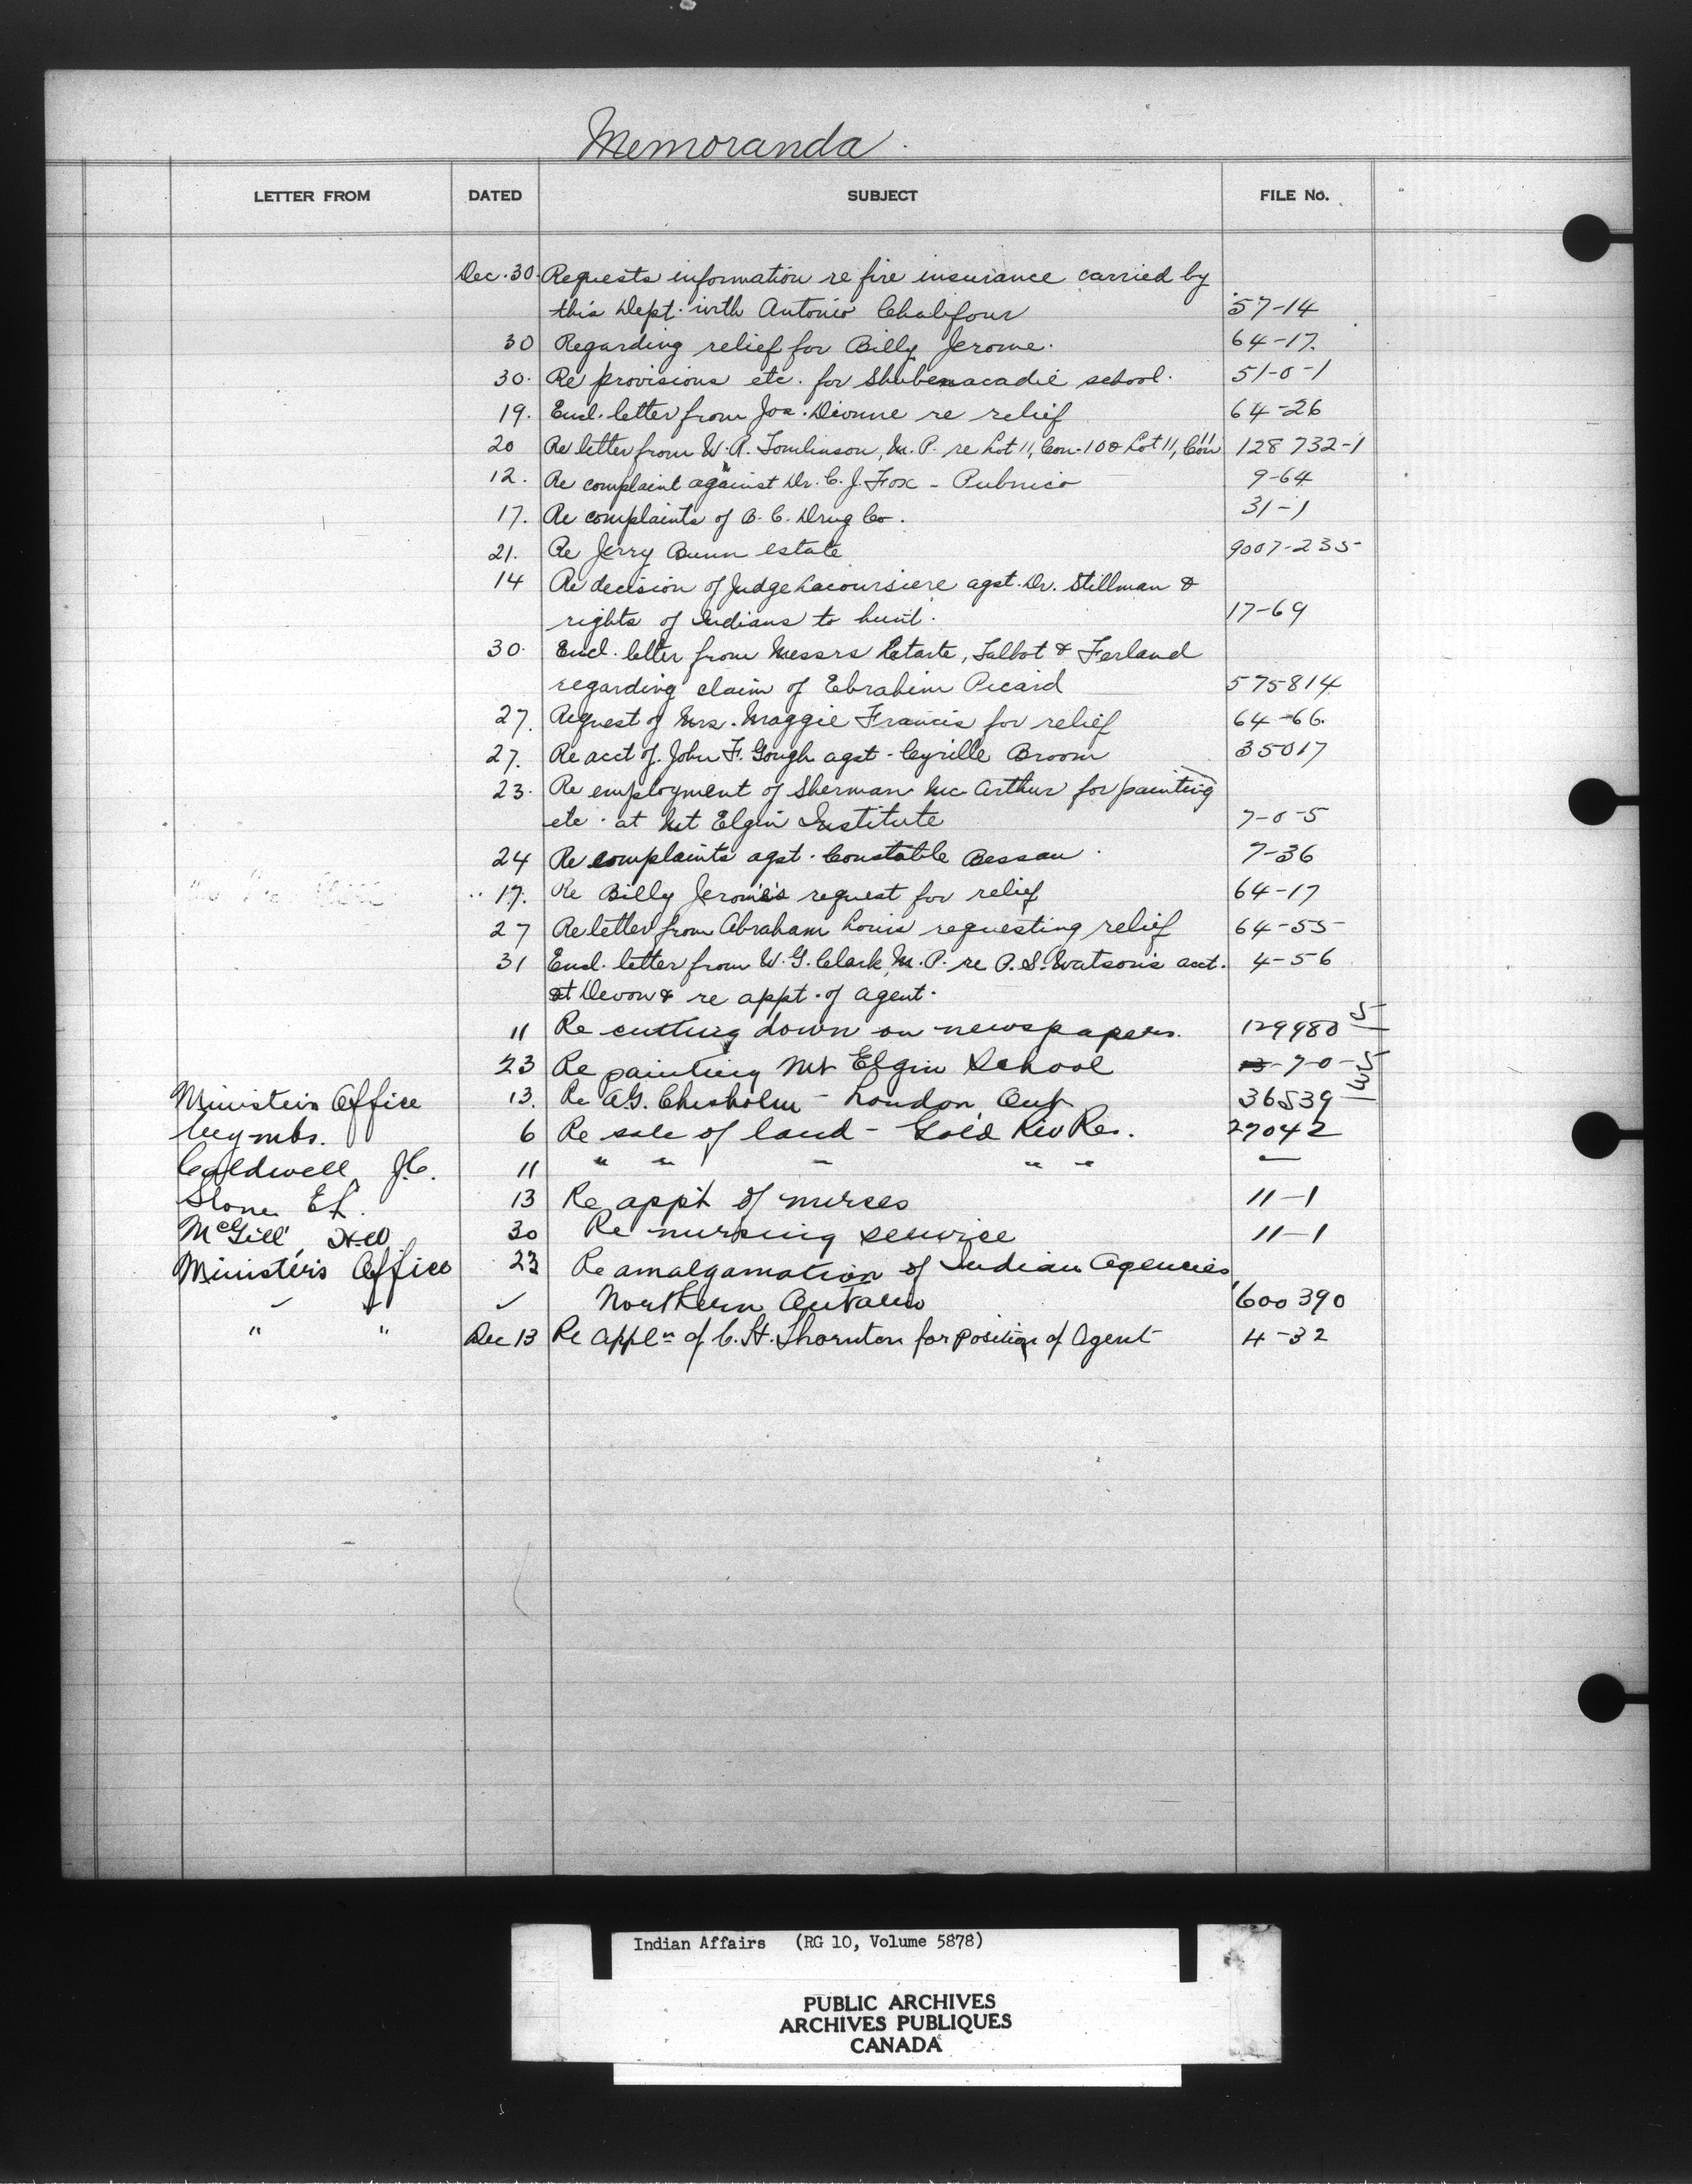 Memoranda.
LETTER FROM DATED SUBJECT FILE No.
Dec. 30. Requests information re fire insurance carried by
this Dept. with Antonio Chalifour 57-14
30 Regarding relief for Billy Jerome. 64-17.
30. Re provisions etc. for Shubenacadie school. 51-0-1
19. Encl. letter from Jos. Dionne re relief 64-26
20 Re letter from W. R. Tomlinson, M. P. re Lot 11, Con. 10 & Lot 11, Con 11 128 732-1
12. Re complaint against Dr. C. J. Fox - Pubnico 9-64
17. Re complaints of B. C. Drug Co. 31-1
21. Re Jerry Bunn estate 9007-235-
14 Re decision of Judge Lacoursiere agst. Dr. Stillman &
rights of Indians to hunt. 17-69
30. Encl. letter from Messrs Letarte, Talbot & Ferland
regarding claim of Ebrahim Picard 575814
27. Request of Mrs. Maggie Francis for relief 64-66.
27. Re acct of John F. Gough agst. Cyrille Broom 35017
23. Re employment of Sherman McArthur for painting
etc. at Mt Elgin Institute 7-0-5
24 Re complaints agst. Constable Bessau. 7-36
17. Re Billy Jerome's request for relief 64-17
27 Re letter from Abraham Louis requesting relief 64-55-
31 Encl. letter from W. G. Clark M. P. re P. S. Watson's acct. 4-56
at Devon & re appt. of agent.
11 Re cutting down on newspapers. 129980
23 Re painting Mt Elgin School 7-0-5
Ministers Office 13. Re A.G. Chisholm - London Ont 36539
6 Re sale of land - Gold Riv Res. 27042
Caldwell J.C. 11 " " " " " "
Stone E.L. 13 Re appt of nurses 11-1
McGill H.W. 30 Re nursing service 11-1
Minister's Office 23 Re amalgamation of Indian Agencies
Northern Ontario 600390
" " Dec 13 Re Appln of C. H. Thornton for position of Agent 4-32
Indian Affairs (RG 10, Volume 5878)
PUBLIC ARCHIVES
ARCHIVES PUBLIQUES
CANADA